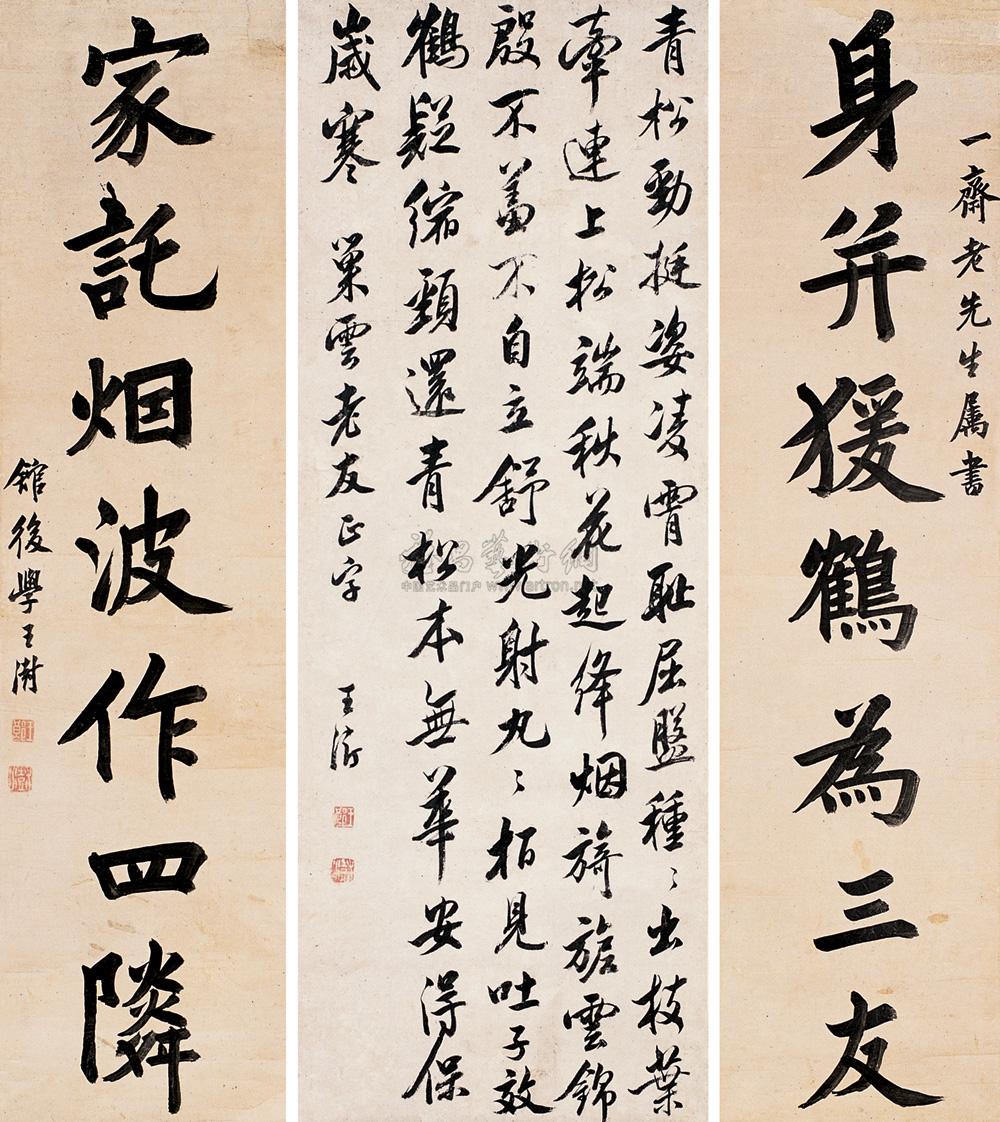 一齋老先生属書
身并猨鶴為三友
青松勁挺姿凌霄耻屈盤種〻出枝葉
牽連上松端秋花起絳烟旖旎雲錦
殷不羞不自立舒光射丸〻栢見吐子效
鶴疑縮頸還青松本無華安得保
歲寒 巢雲老友正字 王澍
家託烟波作四隣
館後學王澍
雅昌藝術網
中国艺术品门户 www.artron.net